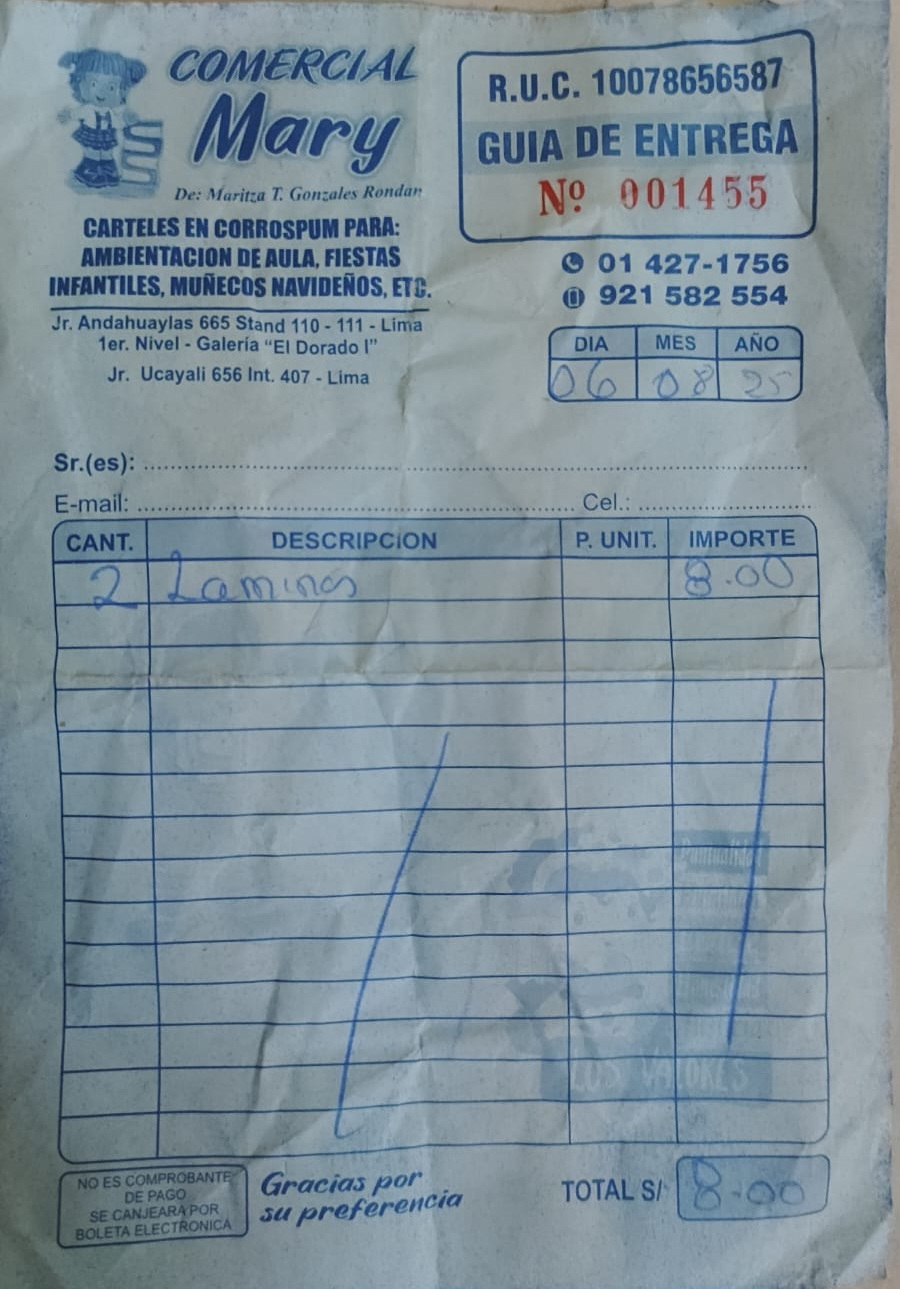 COMERCIAL
Mary
De: Maritza T. Gonzales Rondan
CARTELES EN CORROSPUM PARA:
AMBIENTACION DE AULA, FIESTAS
INFANTILES, MUÑECOS NAVIDEÑOS, ETC.
Jr. Andahuaylas 665 Stand 110 - 111 - Lima
1er. Nivel - Galería "El Dorado I"
Jr. Ucayali 656 Int. 407 - Lima
R.U.C. 10078656587
GUIA DE ENTREGA
Nº 001455
01 427-1756
921 582 554
DIA MES AÑO
06 08 25
Sr.(es):
E-mail: Cel.:
CANT. DESCRIPCION P. UNIT. IMPORTE
2 Laminas 8.00
Puntualidad
LOS VALORES
NO ES COMPROBANTE
DE PAGO
SE CANJEARÁ POR
BOLETA ELECTRONICA
Gracias por
su preferencia
TOTAL S/ 8.00